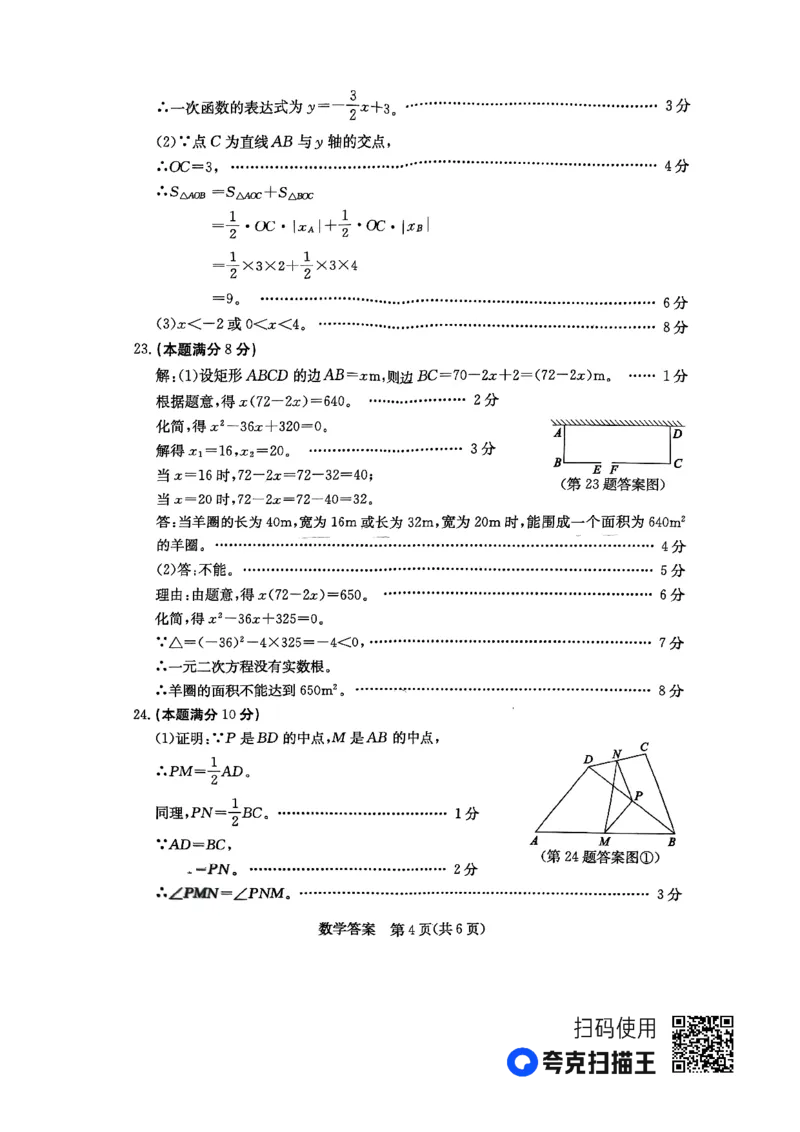 ∴一次函数的表达式为y=-3/2x+3。 3分
(2)∵点C为直线AB与y轴的交点,
∴OC=3, 4分
∴S△AOB=S△AOC+S△BOC
=1/2·OC·|xA|+1/2·OC·|xB|
=1/2×3×2+1/2×3×4
=9。 6分
(3)x<-2或0<x<4。 8分
23.(本题满分8分)
解:(1)设矩形ABCD的边AB=xm,则边BC=70-2x+2=(72-2x)m。 …… 1分
根据题意,得x(72-2x)=640。 2分
化简,得x²-36x+320=0。
解得x₁=16,x₂=20。 3分
当x=16时,72-2x=72-32=40;
当x=20时,72-2x=72-40=32。
A D
B E F C
(第23题答案图)
答:当羊圈的长为40m,宽为16m或长为32m,宽为20m时,能围成一个面积为640m²
的羊圈。 4分
(2)答:不能。 5分
理由:由题意,得x(72-2x)=650。 6分
化简,得x²-36x+325=0。
∵△=(-36)²-4×325=-4<0, 7分
∴一元二次方程没有实数根。
∴羊圈的面积不能达到650m²。 8分
24.(本题满分10分)
(1)证明:∵P是BD的中点,M是AB的中点,
∴PM=1/2AD。
同理,PN=1/2BC。 1分
∵AD=BC,
=PN。 2分
∴∠PMN=∠PNM。 3分
D N C
P
A M B
(第24题答案图①)
数学答案 第4页(共6页)
扫码使用
夸克扫描王